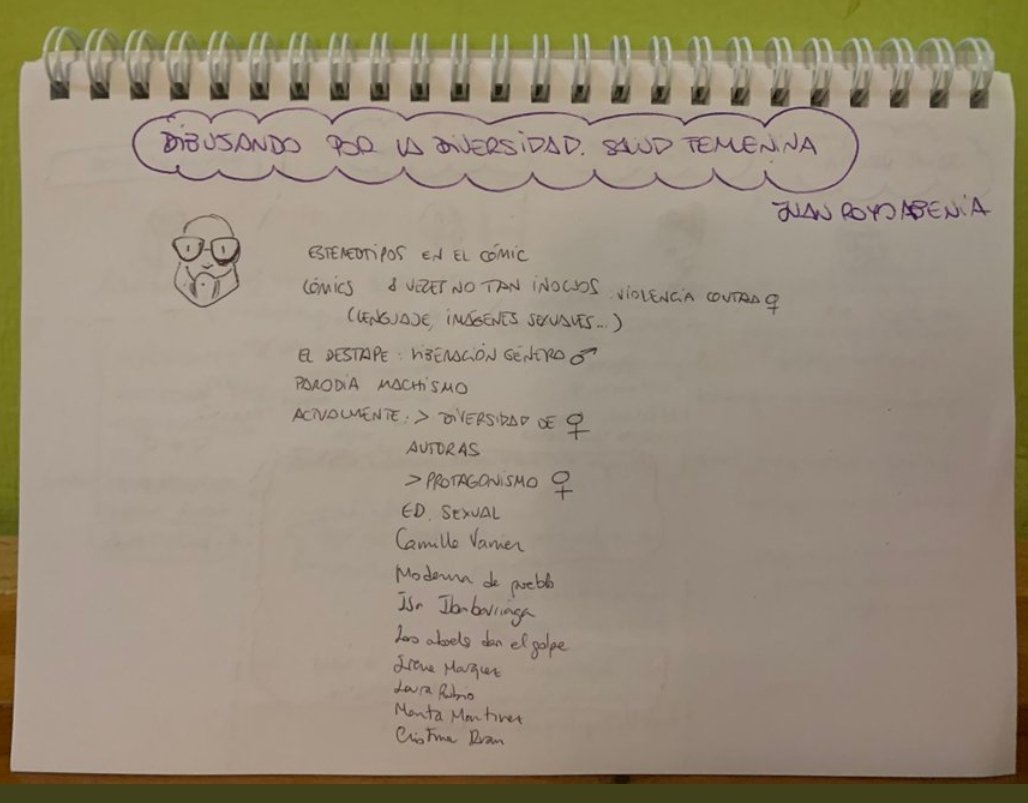 DIBUJANDO POR LA DIVERSIDAD. SALUD FEMENINA
JUAN ROYO ABENIA
ESTEREOTIPOS EN EL CÓMIC
CÓMICS A VECES NO TAN INOCUOS. VIOLENCIA CONTRA ♀
(LENGUAJE, IMÁGENES SEXUALES...)
EL DESTAPE: LIBERACIÓN GÉNERO ♂
PARODIA MACHISMO
ACTUALMENTE: > DIVERSIDAD DE ♀
AUTORAS
> PROTAGONISMO ♀
ED. SEXUAL
Camille Vannier
Moderna de pueblo
Isa Ibaibarriaga
Los abuelos dan el golpe
Irene Márquez
Laura Rubio
Marta Martínez
Cristina Durán